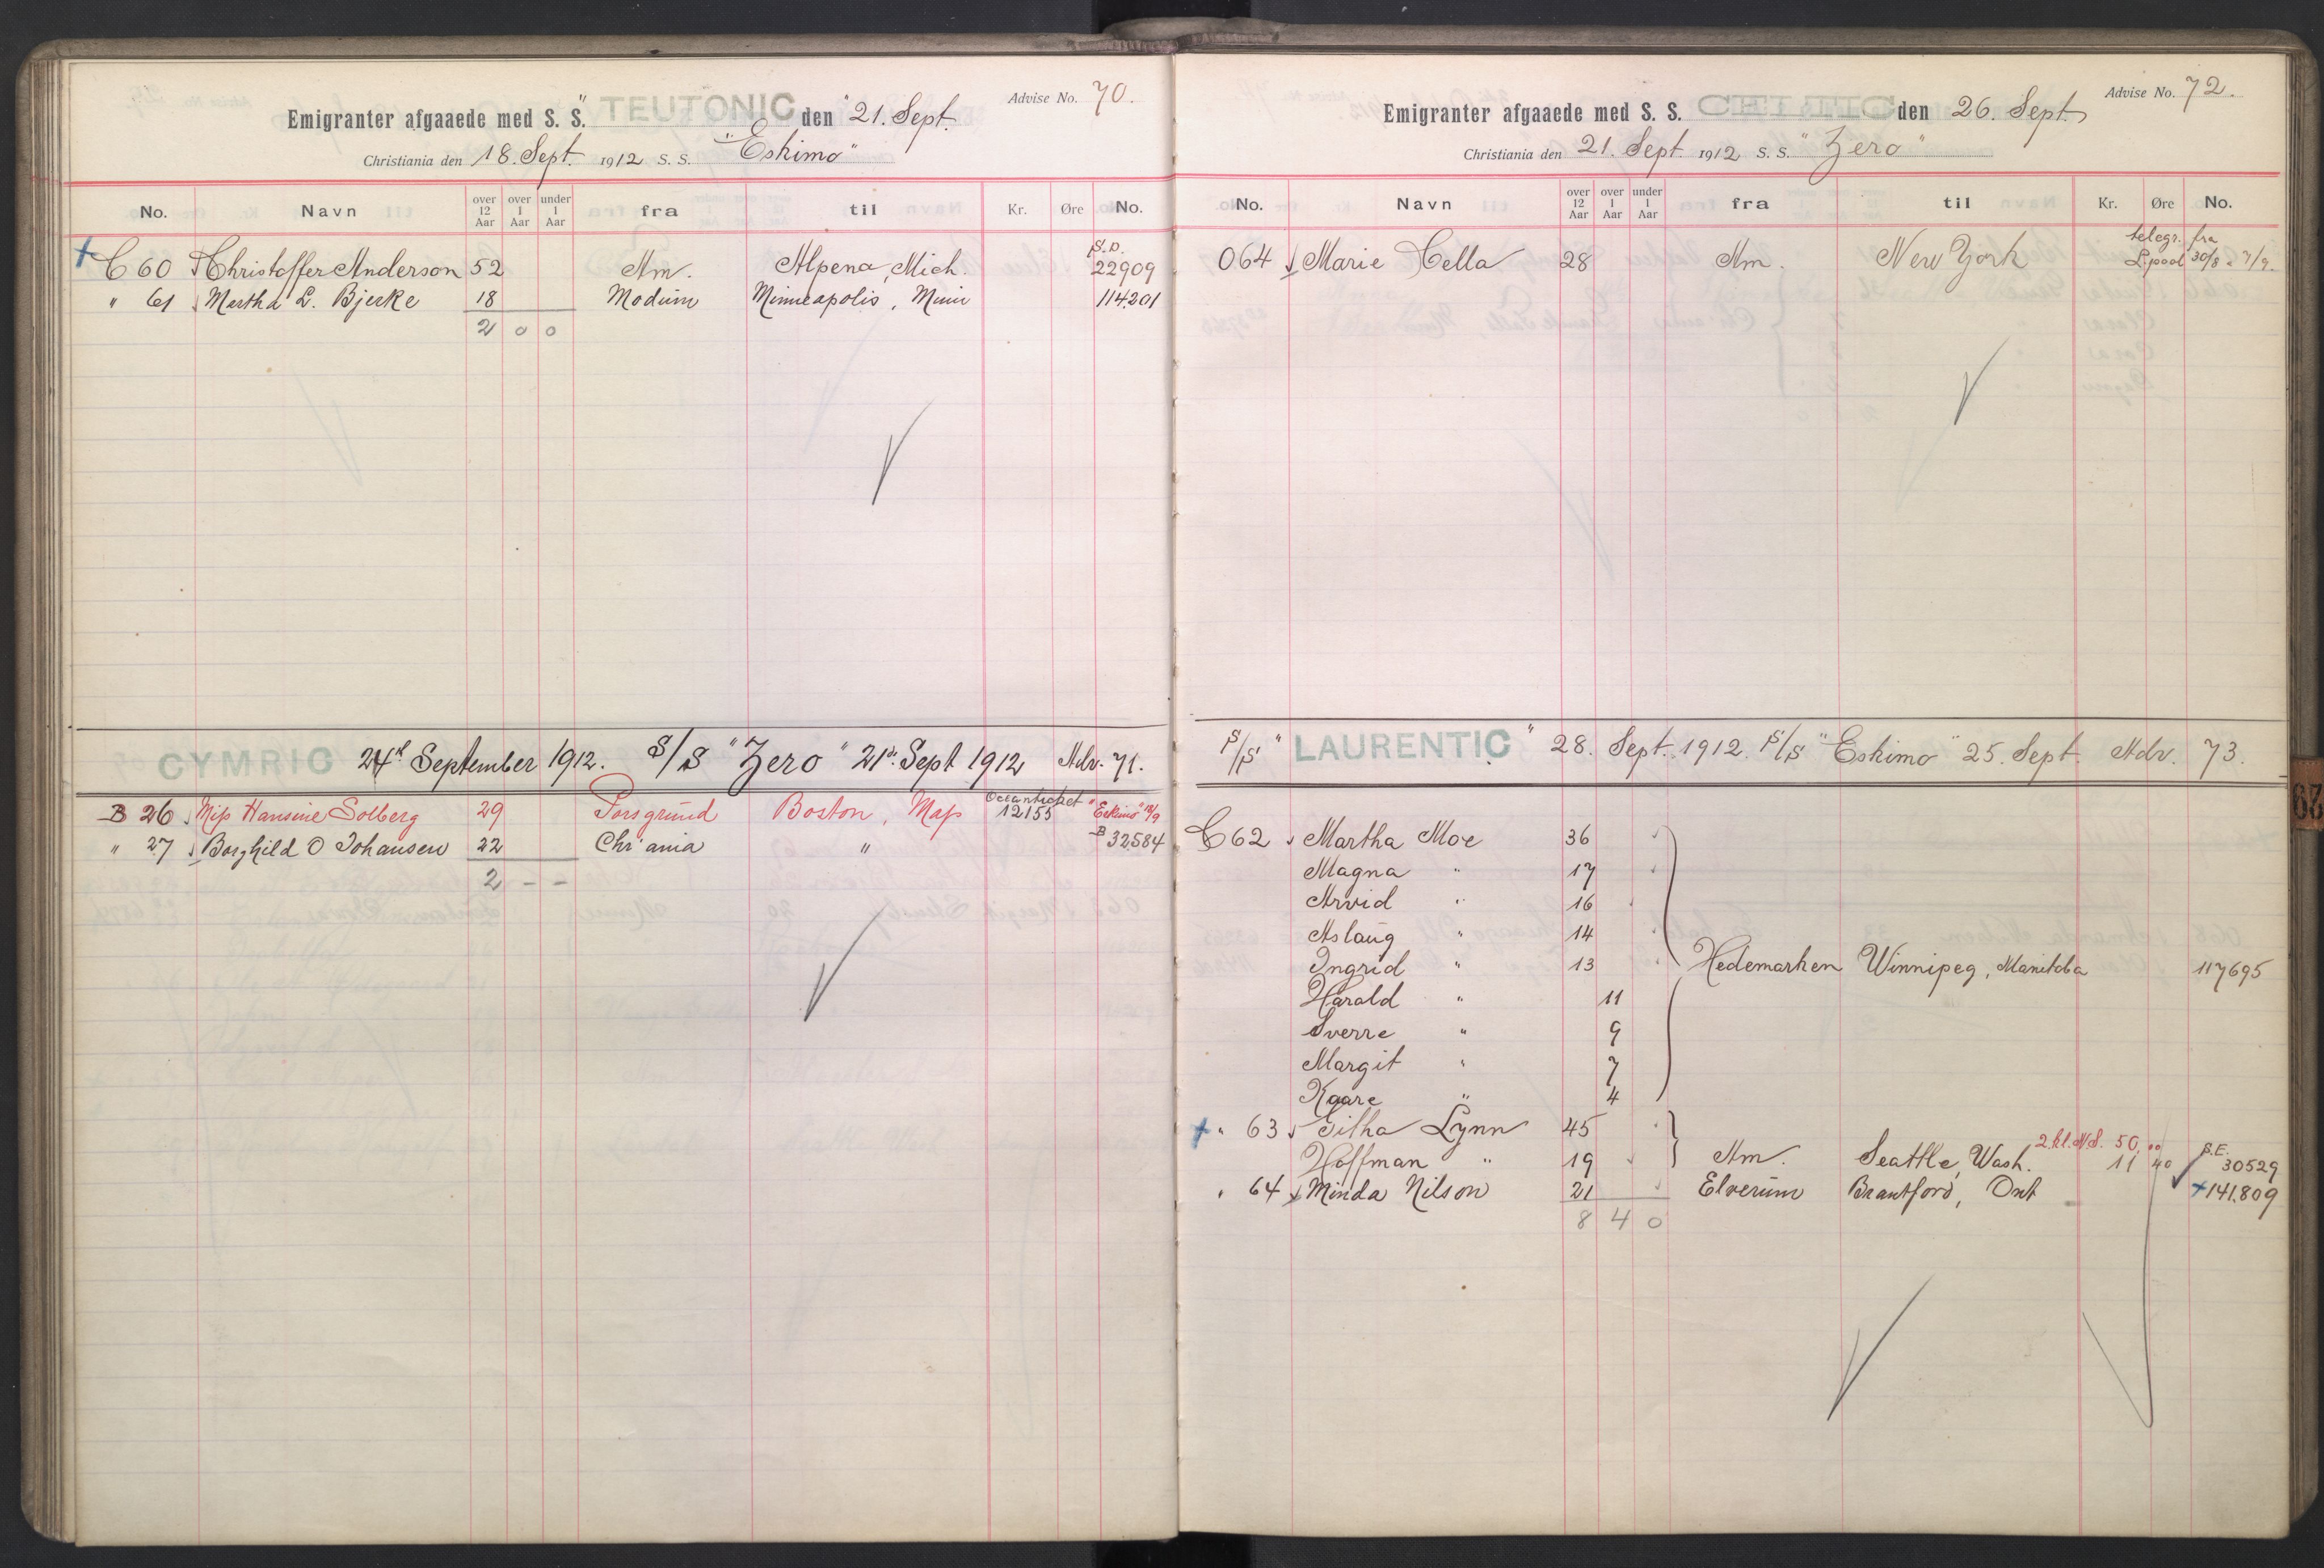 Advise No. 70.
Emigranter afgaaede med S. S. "TEUTONIC" den 21. Sept.
Christiania den 18. Sept. 1912 S. S. "Eskimo"
No. Navn over 12 Aar over 1 Aar under 1 Aar fra til Kr. Øre No.
C 60 Christoffer Anderson 52 Am. Alpena, Mich. S.D. 22909
" 61 Martha L. Bjerke 18 Modum Minneapolis, Minn 114201
2 0 0
CYMRIC 24de September 1912. S/S "Zero" 21de Sept 1912 Adv. 71.
B 26 Miss Hansine Solberg 29 Porsgrund Boston, Mass Oceanticket 12155 "Eskimo" 18/9
" 27 Borghild O Johansen 22 Chr'ania " B 32584
2 - -
Advise No. 72.
Emigranter afgaaede med S. S. CELTIC den 26. Sept.
Christiania den 21. Sept. 1912 S. S. "Zero"
No. Navn over 12 Aar over 1 Aar under 1 Aar fra til Kr. Øre No.
064 Marie Cella 28 Am. New York telegr. fra L.pool 30/8 - 7/9.
S/S "LAURENTIC" 28. Sept. 1912. S/S "Eskimo" 25. Sept. Adv. 73.
C 62 Martha Moe 36
Magna " 17
Arvid " 16
Aslaug " 14
Ingrid " 13 Hedemarken Winnipeg, Manitoba 117695
Harald " 11
Sverre " 9
Margit " 7
Kaare " 4
" 63 Githa Lynn 45
Hoffman " 19 Am. Seattle, Wash. 2.kl. N.S. 50.00 11 40 S.E. 30529
" 64 Minda Nilson 21 Elverum Brantford, Ont +141.809
8 4 0